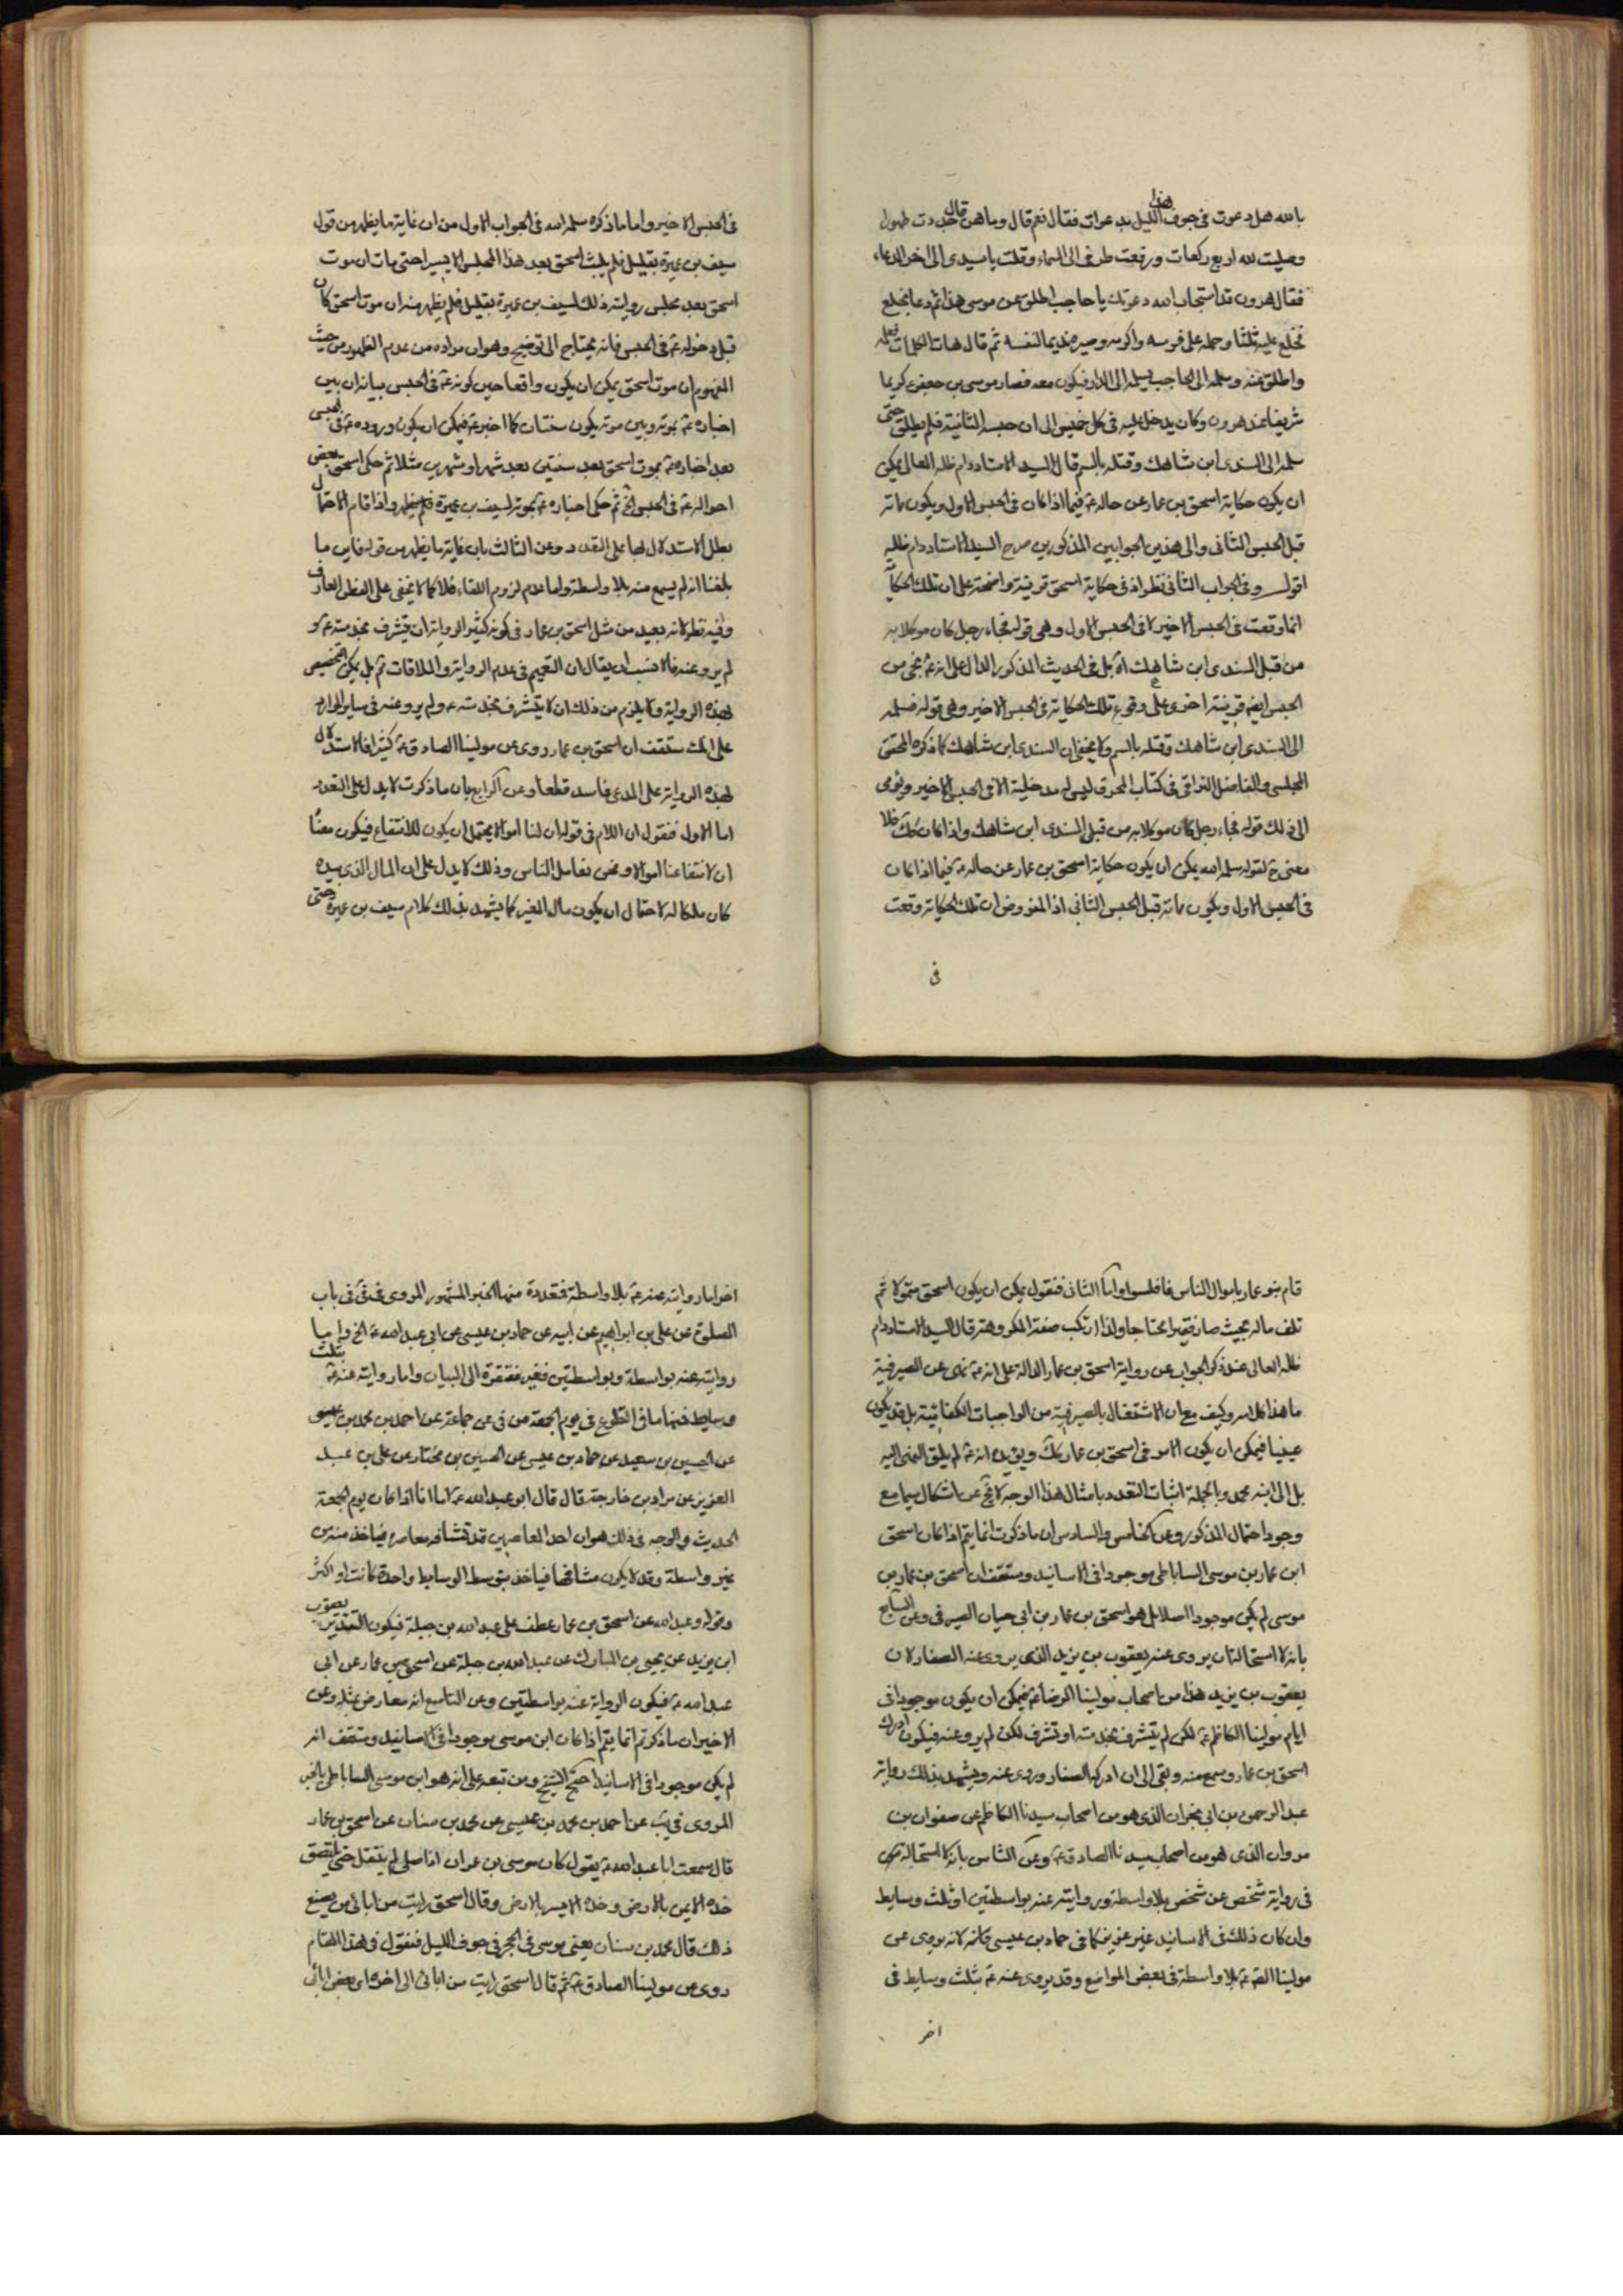 بالله هل دعوت في جوف هذا الليل بدعوات فقال نعم قال وما هن قال جددت طهورا
وصليت لله اربع ركعات ورفعت طرفي الى السماء وقلت يا سيدي الى اخر الدعاء
فقال هرون قد استجاب الله دعوتك يا حاجب اطلق عن موسى هذا ثم دعا بخلع
فخلع عليه ثلثا وحمله على فرسه واكرمه وصيره نديما لنفسه ثم قال هات الكلمات فعلمه
واطلق عنه وسلمه الى الحاجب ليسلمه الى الدار فيكون معه فصار موسى بن جعفر ع كريما
شريفا عند هرون وكان يدخل عليه في كل خميس الى ان حبسه الثانية فلم يطلق حتى
سلمه الى السندي ابن شاهك وقتله بالسم قال السيد الاستاد دام ظله العالي يمكن
ان يكون حكاية اسحق بن عمار عن حاله ع فيما اذا كان في الحبس الاول ويكون مماته
قبل الحبس الثاني والى هذين الجوابين المذكورين صرح السيد الاستاد دام ظله
اقول وفي الجواب الثاني نظر اذ في حكاية اسحق قرينة واضحة على ان تلك الحكاية
انما وقعت في الحبس الاخير لا في الحبس الاول وهي قوله فجاء رجل كان موكلا به
من قبل السندي ابن شاهك اه بل في الحديث المذكور الدال على انه ع نجى من
الحبس ايضا قرينة اخرى على وقوع تلك الحكاية في الحبس الاخير وهي قوله فسلمه
الى السندي ابن شاهك وقتله بالسم ولا يخفى ان السندي ابن شاهك كما ذكره المحقق
المجلسي والفاضل النراقي في كتاب المحرق ليس له مدخلية الا في الحبس الاخير ويؤمى
الى ذلك قوله فجاء رجل كان موكلا به من قبل السندي ابن شاهك واذا كان كك فلا
معنى ح لقوله سلمه الله يمكن ان يكون حكاية اسحق بن عمار عن حاله ع فيما اذا كان
في الحبس الاول ويكون مماته قبل الحبس الثاني اذ المفروض ان تلك الحكاية وقعت
في
في الحبس الاخير واما ما ذكره سلمه الله في الجواب الاول من ان غاية ما يظهر من قول
سيف بن عميرة بقليل فلم يلبث اسحق بعد هذا المجلس الا يسيرا حتى مات ان موت
اسحق بعد مجلس روايته ذلك لسيف بن عميرة بقليل فلم يظهر منه ان موت اسحق كان
قبل دخوله ع في الحبس فانه يحتاج الى توضيح وهو ان مراده من عدم الظهور من حيث
المفهوم ان موت اسحق يمكن ان يكون واقعا حين كونه ع في الحبس بيانه ان بين
اخباره ع بموته وبين موته يكون سنتان كما اخبر ع فيمكن ان يكون وروده ع في الحبس
بعد اخباره ع بموت اسحق بعد سنتين بعد شهر او شهرين مثلا ثم حكى اسحق بعض
احواله ع في الحبس الخ ثم حكى اخباره ع بموته لسيف بن عميرة فلم يظهر واذا قام الاحتمال
بطل الاستدلال بها على التعدد وعن الثالث بان غاية ما يظهر من قوله فاين ما
بلغنا انه لم يسمع منه بلا واسطة واما عدم لزوم اللقاء فلا كما لا يخفى على الفطن العارف
وفيه نظر لانه بعيد من مثل اسحق بن عمار في كونه كثير الرواية ان يتشرف بخدمته ع و
لم يرو عنه فالانسب ان يقال ان التعميم في عدم الرواية والملاقات ثم بل يمكن التخصيص
بهذه الرواية ولا يلزم من ذلك ان لا يتشرف بخدمته ع ولم يرو عنه في ساير الموارد
على انك ستقف ان اسحق بن عمار روى عن مولينا الصادق ع كثيرا فالاستدلال
بهذه الرواية على المدعى فاسد قطعا وعن الرابع بان ما ذكرت لا يدل على التعدد
اما الاول فنقول ان اللام في قوله ان لنا اموالا يحتمل ان يكون للانتفاع فيكون معناه
ان لانتفاعنا اموالا ونحن نعامل الناس وذلك لا يدل على ان المال الذي بيده
كان ملكا له لاحتمال ان يكون مال الغير كما يشهد بذلك كلام سيف بن عميرة حتى
قام بنو عمار باموال الناس فافلسوا واما الثاني فنقول يمكن ان يكون اسحق متمولا ثم
تلف ماله بحيث صار فقيرا محتاجا ولذا ارتكب صفة المكروهة قال السيد الاستاد دام
ظله العالي عند ذكر الجواب عن رواية اسحق بن عمار الدالة على انه ع نهى عن الصيرفية
ما هذا كلامه وكيف مع ان الاشتغال بالصيرفية من الواجبات الكفائية بل قد يكون
عينيا فيمكن ان يكون الامر في اسحق بن عمار كك ويؤيده انه ع لم يلق النهي اليه
بل الى ابنه محمد وبالجملة اثبات التعدد بامثال هذا الوجه لا يخ عن اشكال سيما مع
وجود احتمال المذكور وعن الخامس والسادس ان ما ذكرت انما يتم اذا كان اسحق
ابن عمار بن موسى الساباطي موجودا في الاسانيد وستقف ان اسحق بن عمار بن
موسى لم يكن موجودا اصلا بل هو اسحق بن عمار بن ابي حيان الصيرفي وعن السابع
بانه لا استحالة ان يروى عنه يعقوب بن يزيد الذي يروى عنه الصفار لان
يعقوب بن يزيد هذا من اصحاب مولينا الرضا ع فيمكن ان يكون موجودا في
ايام مولينا الكاظم ع لكن لم يتشرف بخدمته او تشرف لكن لم يرو عنه فيكون ادرك
اسحق بن عمار وسمع منه وبقى الى ان ادركه الصفار وروى عنه ويشهد بذلك رواية
عبد الرحمن بن ابي نجران الذي هو من اصحاب سيدنا الكاظم عن صفوان بن
مروان الذي هو من اصحاب سيدنا الصادق ع وعن الثامن بانه لا استحالة
في رواية شخص عن شخص بلا واسطة وروايته عنه بواسطتين او ثلث وسايط
وان كان ذلك في الاسانيد غير عزيز كما في حماد بن عيسى فانه لانه يروى عن
مولينا الصه ع بلا واسطة في بعض المواضع وقد يروى عنه ع بثلث وسايط في
اخر
اخر اما روايته عنه ع بلا واسطة فمتعددة منها الخبر المشهور المروى في في في باب
الصلوة عن علي بن ابراهيم عن ابيه عن حماد بن عيسى عن ابي عبد الله ع الخ واما
روايته عنه بواسطة وبواسطتين فغير مفتقرة الى البيان واما روايته عنه ع بثلث
وسايط فمنها ما في التطوع في يوم الجمعة من في عن جماعة عن احمد بن محمد بن عيسى
عن الحسين بن سعيد عن حماد بن عيسى عن الحسين بن مختار عن علي بن عبد
العزيز عن مراد بن خارجة قال قال ابو عبد الله ع اما انا اذا كان يوم الجمعة
الحديث والوجه في ذلك هو ان احد المعاصرين قد تشافه معاصره فياخذ منه من
غير واسطة وقد لا يكون مشافها فياخذ بتوسط الوسايط واحدة كانت او اكثر
وقوله وعبد الله عن اسحق بن عمار عطف على عبد الله بن جبلة فيكون التقدير يعقوب
ابن يزيد عن يحيى بن المبارك عن عبد الله بن جبلة عن اسحق بن عمار عن ابي
عبد الله ع فيكون الرواية عنه بواسطتين وعن التاسع انه معارض بمثله وعن
الاخير ان ما ذكرتم انما يتم اذا كان ابن موسى موجودا في الاسانيد وستقف انه
لم يكن موجودا في الاسانيد احتج الشيخ ومن تبعه على انه هو ابن موسى الساباطي بالخبر
المروى في يب عن احمد بن محمد بن عيسى عن محمد بن سنان عن اسحق بن عمار
قال سمعت ابا عبد الله ع يقول كان موسى بن عمران اذا صلى لم ينفتل حتى يلتصق
خده الايمن بالارض وخده الايسر بالارض وقال اسحق رايت من ابائي من يصنع
ذلك قال محمد بن سنان يعني موسى في الحجر في جوف الليل فنقول في هذا المقام
روى عن مولينا الصادق ع ثم قال اسحق رايت من ابائي الى اخره اى بعض ابائي